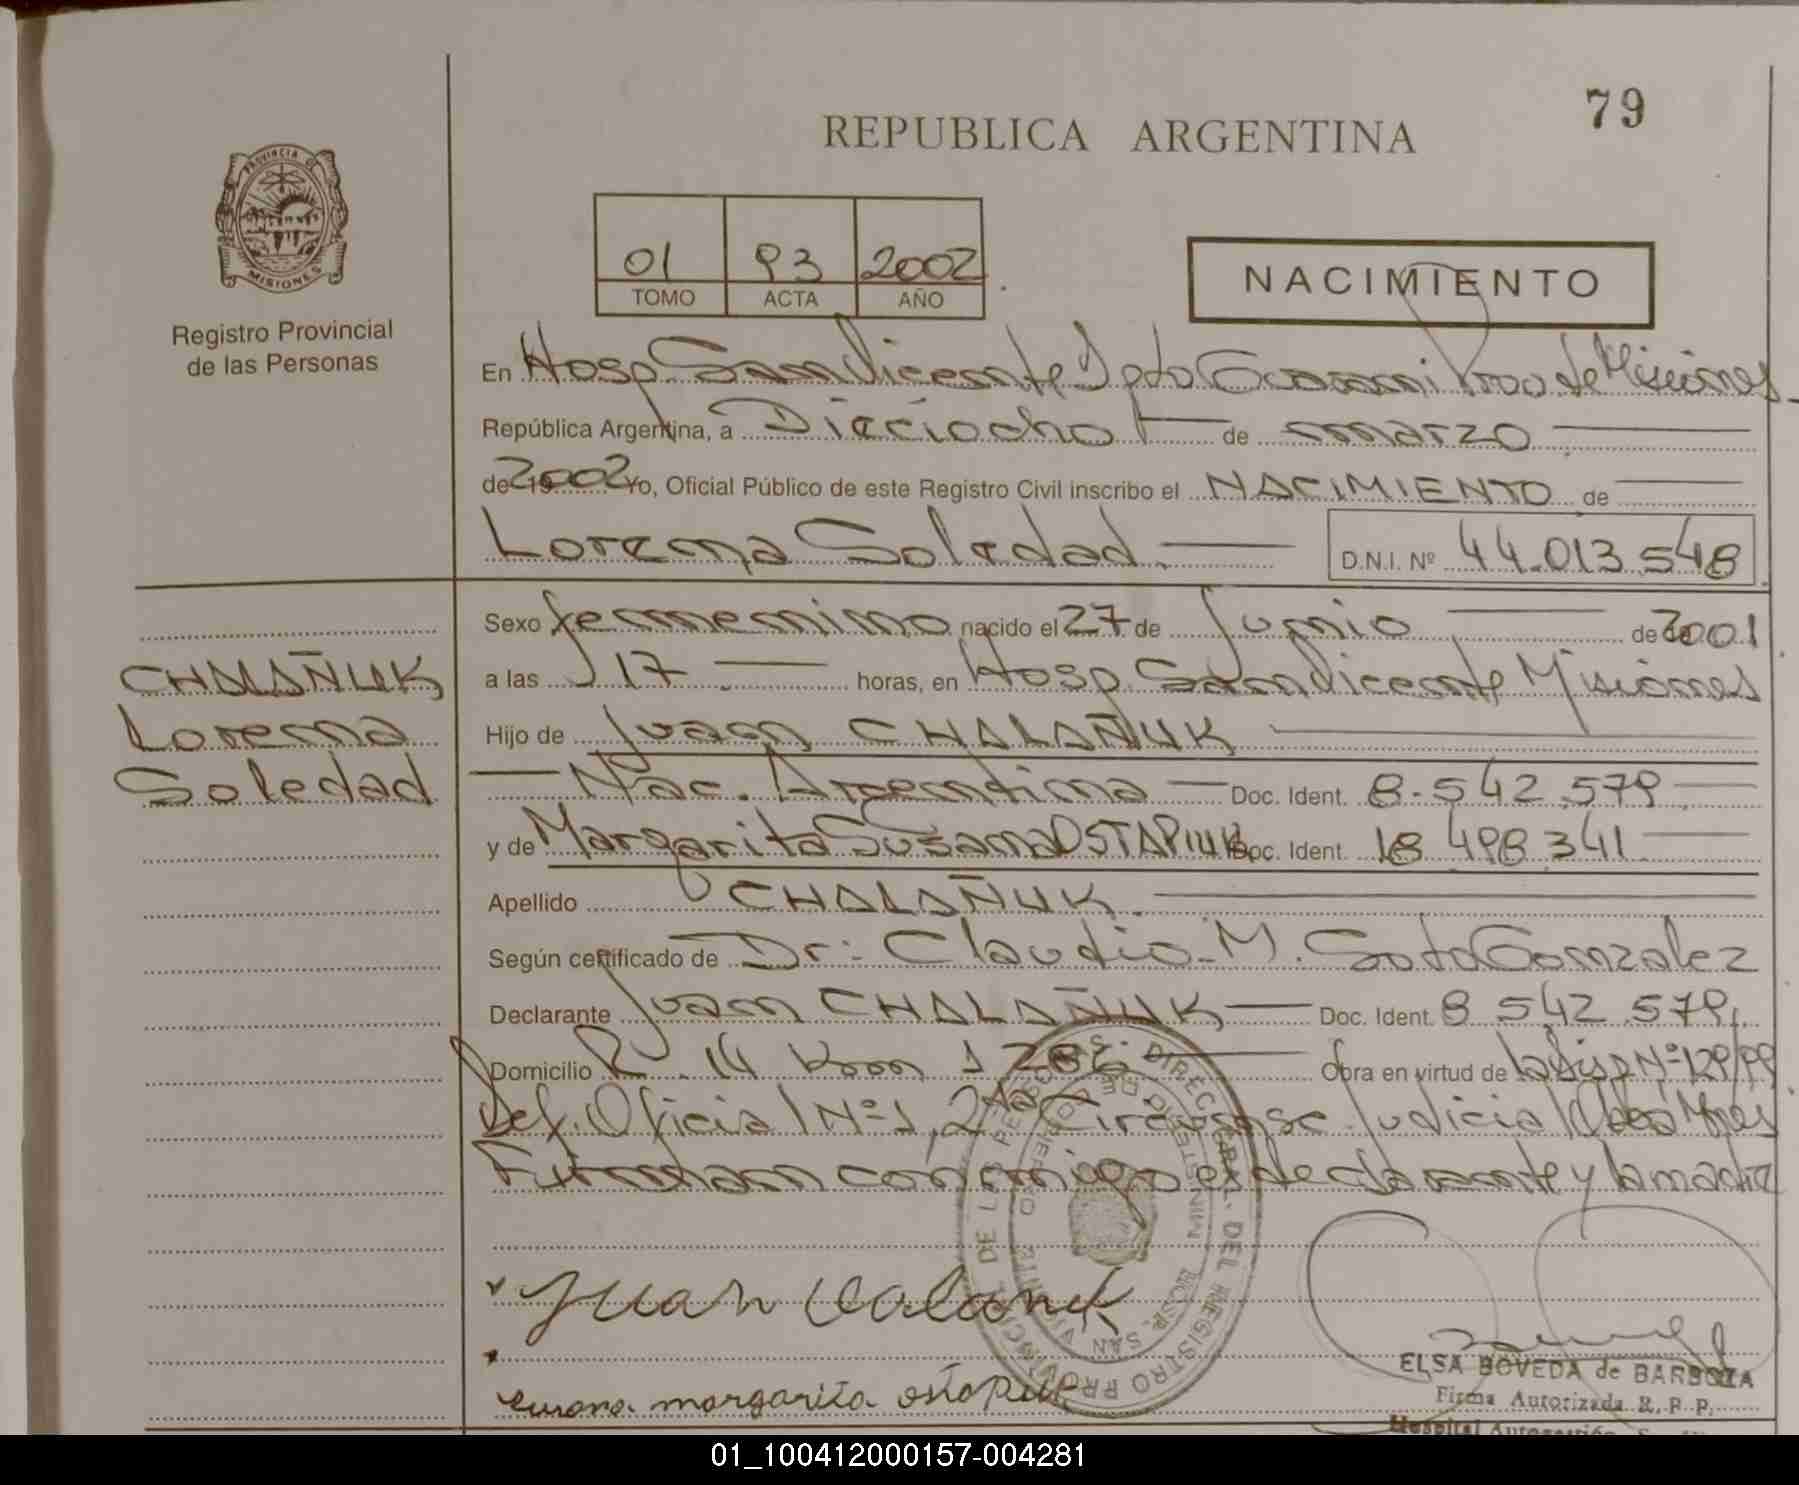 79
REPUBLICA ARGENTINA
PROVINCIA DE
MISIONES
Registro Provincial
de las Personas
01 93 2002
TOMO ACTA AÑO
NACIMIENTO
En Hosp San Vicente Dpto Guarani Prov de Misiones
República Argentina, a Dieciocho de marzo
de 2002 Yo, Oficial Público de este Registro Civil inscribo el NACIMIENTO de
Lorena Soledad D.N.I. Nº 44.013.548
CHALAÑUK
Lorena
Soledad
Sexo femenino nacido el 27 de Junio de 2001
a las 17 horas, en Hosp. San Vicente Misiones
Hijo de Juan CHALAÑUK
Nac. Argentina Doc. Ident. 8.542.579
y de Margarita Susana OSTAPIUK Doc. Ident. 18 498 341
Apellido CHALAÑUK
Según certificado de Dr. Claudio M. Soto Gonzalez
Declarante Juan CHALAÑUK Doc. Ident. 8 542 579
Domicilio R. 14 Km 1286 Obra en virtud de la Disp Nº 129/99
Def. Oficial Nº 1, 2da Circunsc. Judicial Obera Mnes
Firman conmigo el declarante y la madre
DIREC. GRAL. DEL REGISTRO PROVINCIAL DE LAS PERSONAS
HOSP. SAN VICENTE
Juan
susana margarita ostapiuk
ELSA BOVEDA de BARBOZA
Firma Autorizada R. P. P.
Hospital Autogestión
01_100412000157-004281